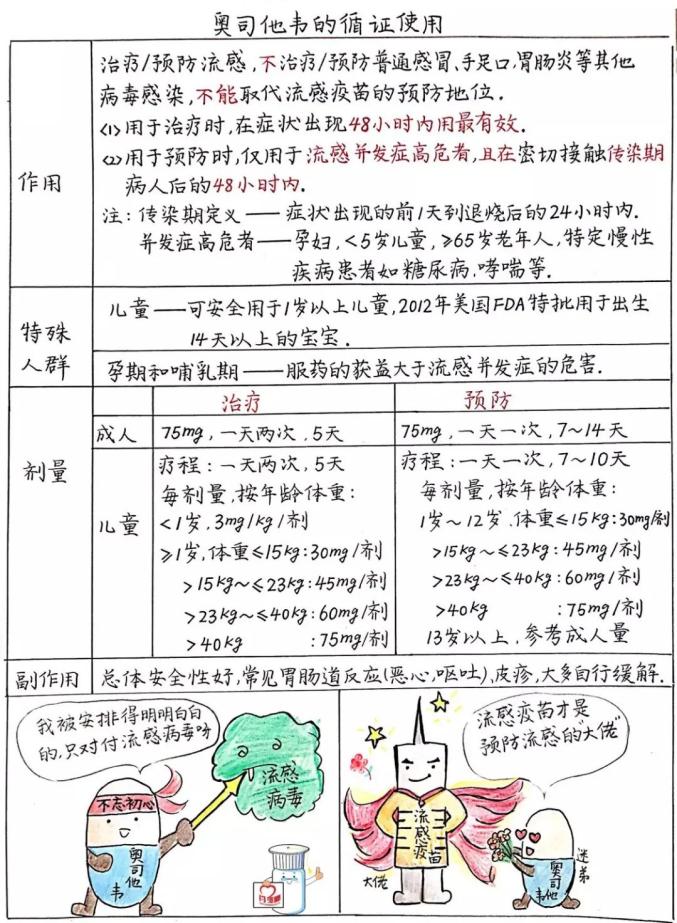 奥司他韦的循证使用
作用
治疗/预防流感,不治疗/预防普通感冒、手足口,胃肠炎等其他
病毒感染,不能取代流感疫苗的预防地位.
<1>用于治疗时,在症状出现48小时内用最有效.
<2>用于预防时,仅用于流感并发症高危者,且在密切接触传染期
病人后的48小时内.
注:传染期定义——症状出现的前1天到退烧后的24小时内.
并发症高危者——孕妇,<5岁儿童,≥65岁老年人,特定慢性
疾病患者如糖尿病,哮喘等.
特殊
人群
儿童——可安全用于1岁以上儿童,2012年美国FDA特批用于出生
14天以上的宝宝.
孕期和哺乳期——服药的获益大于流感并发症的危害.
剂量
治疗
预防
成人
75mg,一天两次,5天
75mg,一天一次,7~14天
儿童
疗程:一天两次,5天
每剂量,按年龄体重:
<1岁,3mg/kg/剂
≥1岁,体重≤15kg:30mg/剂
>15kg~≤23kg:45mg/剂
>23kg~≤40kg:60mg/剂
>40kg :75mg/剂
疗程:一天一次,7~10天
每剂量,按年龄体重:
1岁~12岁.体重≤15kg:30mg/剂
>15kg~≤23kg:45mg/剂
>23kg~≤40kg:60mg/剂
>40kg :75mg/剂
13岁以上,参考成人量
副作用
总体安全性好,常见胃肠道反应(恶心,呕吐),皮疹,大多自行缓解.
我被安排得明明白白
的,只对付流感病毒呀
流感
病毒
不忘初心
奥司他
韦
流感疫苗才是
"预防流感的大佬"
流感疫苗
大佬
奥司他韦
迷弟